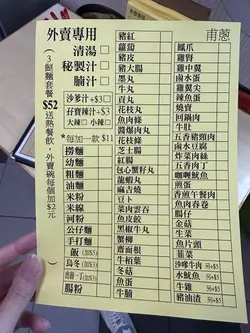 外賣專用
甫蔥
清湯
秘製汁
腩汁
沙爹汁+$3
孖寶辣汁+$3
大辣 小辣
*每加一款 $11
(3餸麵套餐)
$52
送熱餐飲，外賣碗每個加$2元
撈麵
幼麵
粗麵
油麵
米粉
米線
河粉
公仔麵
手打麵
瀨 (加$3)
烏冬 (加$3)
腸粉
豬紅
蘿蔔
豬皮
豬大腸
墨丸
牛丸
貢丸
花枝丸
魚肉條
醬爆肉丸
花枝條
芝士腸
紅腸
包心蟹籽丸
龍蝦丸
麻吉燒
豆卜
菜肉雲吞
魚皮餃
黑椒牛丸
蟹柳
齋面根
牛栢葉
冬菇
魚蛋
牛腩
鳳爪
雞腎
雞中翼
鹵水蛋
雞翼尖
辣魚蛋
燒賣
回鍋肉
牛肚
五香豬頸肉
鹵水豆腐
炸菜肉絲
五香肉丁
咖喱魷魚
煎蛋
香煎午餐肉
魚肉春卷
腸仔
金菇
生菜
魚片頭
韭菜
沙嗲牛肉
水魷魚
牛雜
豬油渣